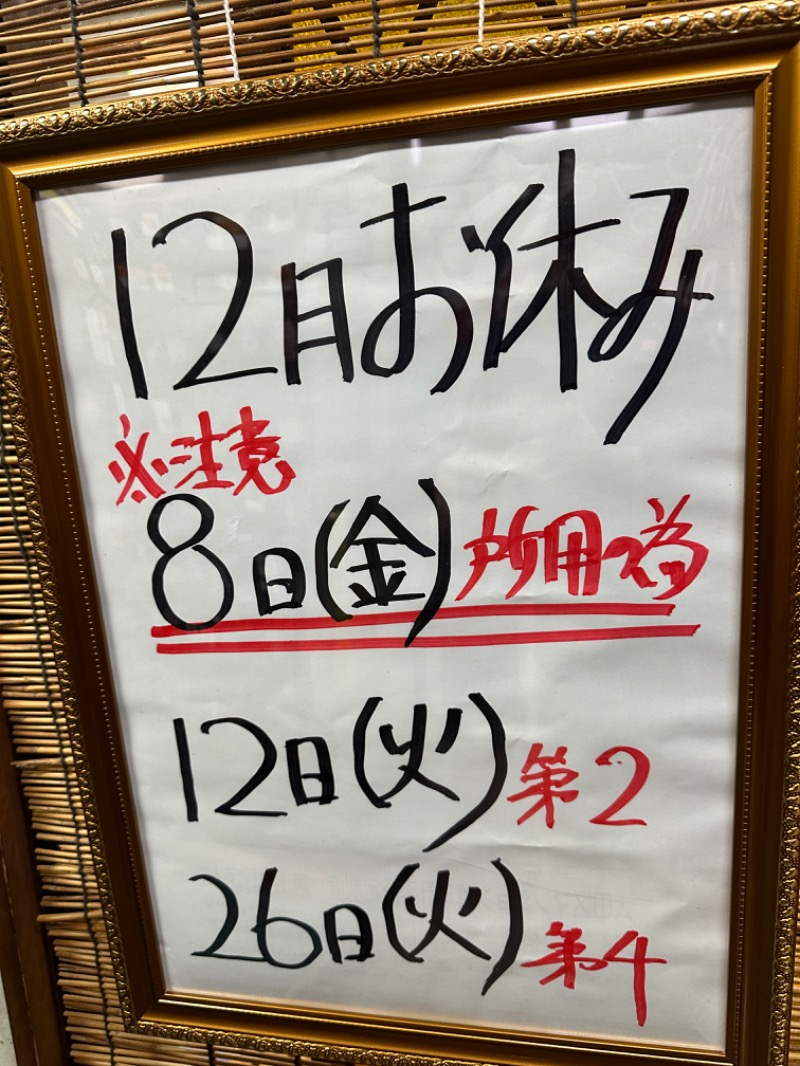 12月お休み
※注意
8日(金)所用の為
12日(火)第2
26日(火)第4